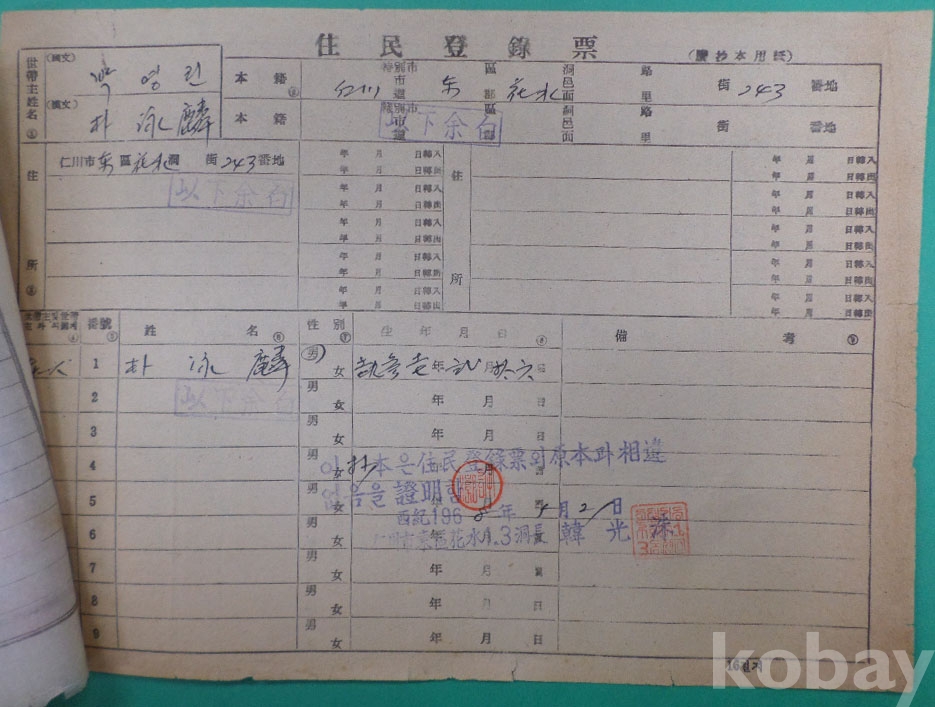 住民登錄票
(謄抄本用紙)
世帶主姓名
(國文) 박영린
(漢文) 朴泳麟
本籍 特別市 市 道 仁川 東 區 郡 花水 洞 邑 面 路 里 街 243 番地
本籍 特別市 市 道 區 郡 洞 邑 面 路 里 街 番地
以下余白
住所
仁川市 東區 花水洞 街 243番地
以下余白
年 月 日轉入
年 月 日轉出
年 月 日轉入
年 月 日轉出
年 月 日轉入
年 月 日轉出
年 月 日轉入
年 月 日轉出
年 月 日轉入
年 月 日轉出
住所
年 月 日轉入
年 月 日轉出
年 月 日轉入
年 月 日轉出
年 月 日轉入
年 月 日轉出
年 月 日轉入
年 月 日轉出
年 月 日轉入
年 月 日轉出
番號 姓名 性別 生年月日 備考
1 朴泳麟 男 女 年 月 日
以下余白
2 男 女 年 月 日
3 男 女 年 月 日
4 男 女 年 月 日
이 抄本은 住民登錄票의 原本과 相違
없음을 證明함
5 男 女 年 月 日
西紀1968年 4月 2 日
6 男 女 年 月 日
仁川市東區花水.3洞長 韓光洙
7 男 女 年 月 日
8 男 女 年 月 日
9 男 女 年 月 日
kobay